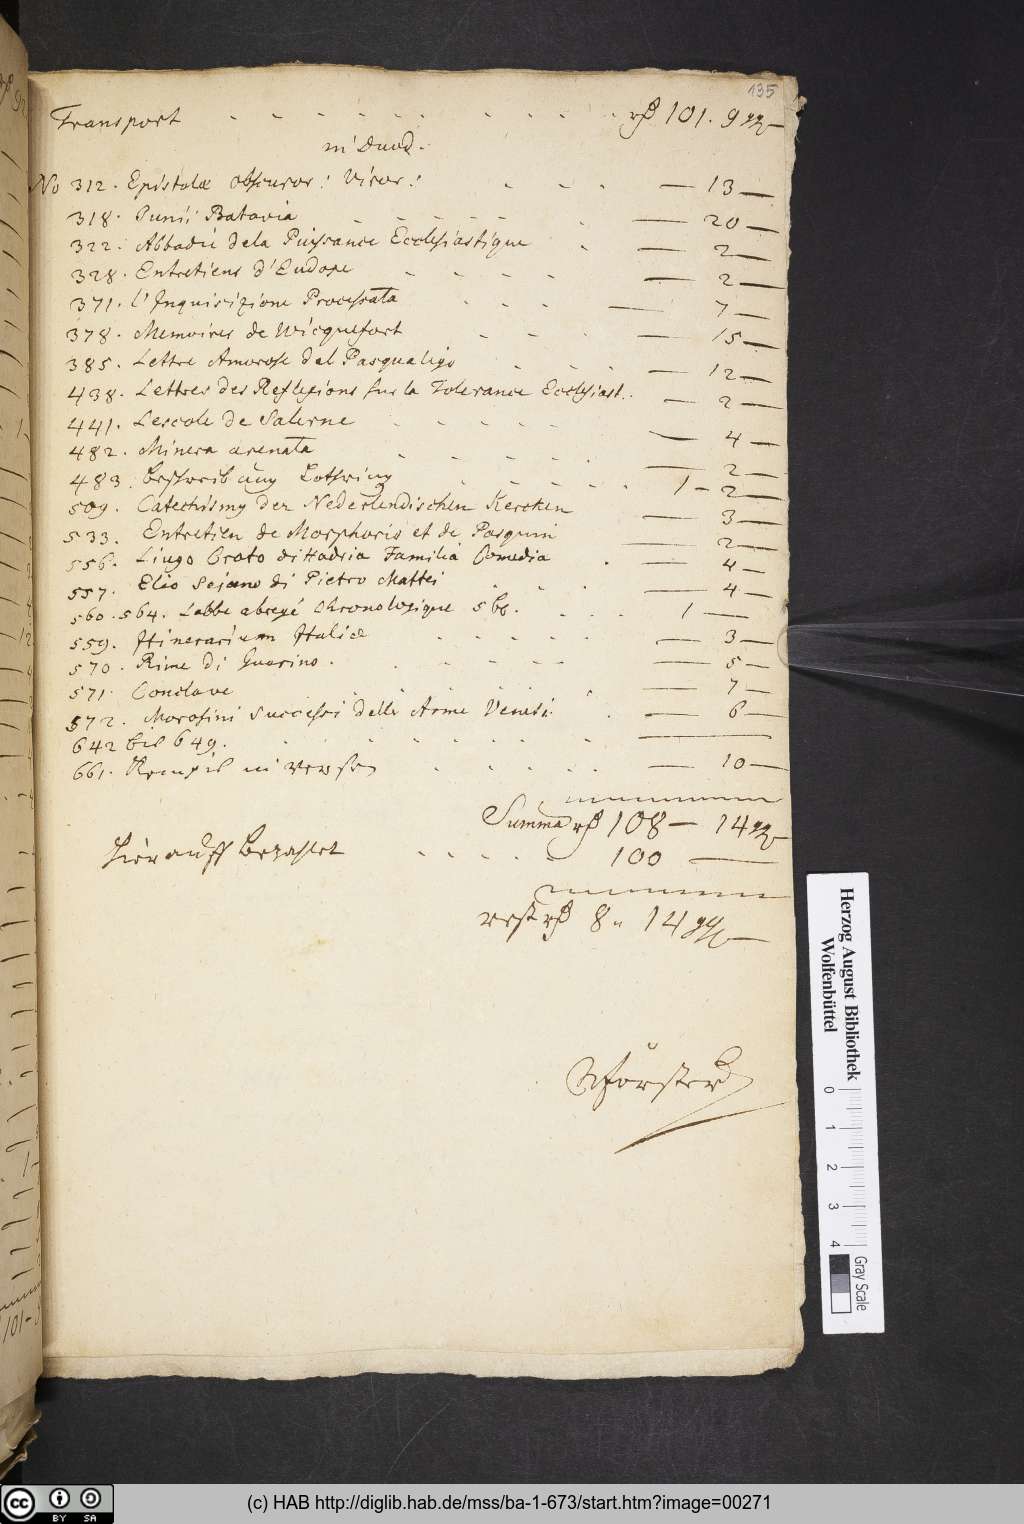 135
Transport - - - - - - - - - - rß 101. 9 ggr
in Duod.
No 312. Epistolæ obscuror: Viror: - - - 13
318. Junii Batavia - - - - - - 20
322. Abbadie dela Puissance Ecclesiastique - 2
328. Entretiens d'Eudoxe - - - - 2
371. l'Inquisizione Processata - - - 7
378. Memoires de Wicquefort - - - 15
385. Lettre Amorose del Pasqualigo - - - 12
438. Lettres des Reflexions sur la Tolerance Ecclesiast.. 2
441. Lescole de Salerne - - - - - 4
482. Minera arenata - - - - - 2
483. beschreibung Lothring - - - - - 1 - 2
509. Catechismg der Nederlendischen Kercken 3
533. Entretien de Morphorio et de Pasquin 2
556. Liugo Croto di Hadria Familia Comedia . 4
557. Elio Sejano di Pietro Mattei - - - 4
560. 564. Labbe abregé Chronologique 5 be. - - - 1
559. Itinerarium Italiæ - - - - - 3
570. Rime di Guarino. - - - - - 5
571. Conclave - - - - - 7
572. Morosini Successi delle Arme Veneti. - 6
642 bis 649. - - - - - - -
661. in versen - - - - - 10
Summa rß 108 - 14 ggr
Hierauff bezahlet - - - - - 100
rest rß 8 - 14 ggr
Förster
12
1
101 -
Herzog August Bibliothek
Wolfenbüttel
0 1 2 3 4
Gray Scale
cc BY SA
(c) HAB http://diglib.hab.de/mss/ba-1-673/start.htm?image=00271